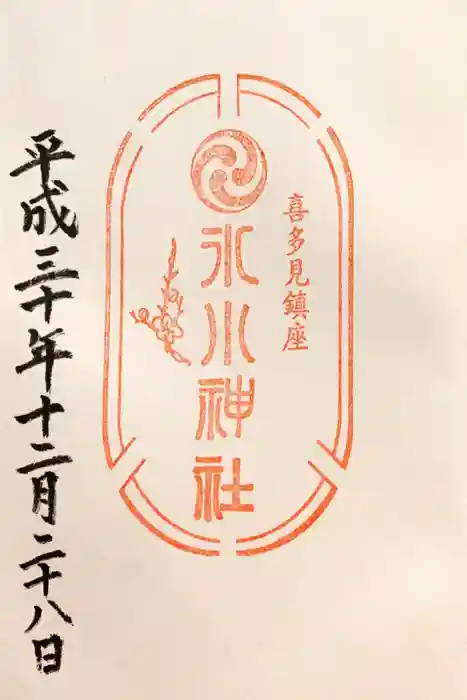 喜多見鎮座
氷川神社
平成三十年十二月二十八日